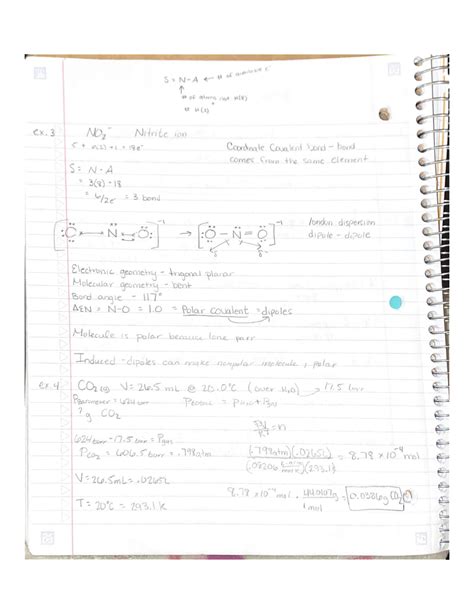 S = N - A ← # of available e
↑
# of atoms not H(8)
# H(2)
ex. 3 NO₂⁻ Nitrite ion
5 + 6(2) + 1 = 18e⁻ Coordinate Covalent bond - bond
comes from the same element
S = N - A
= 3(8) - 18
= 6/2e = 3 bond
[:O → N ⇆ O:]⁻¹ → [:O - N = O]⁻¹ london dispersion
dipole - dipole
Electronic geometry - trigonal planar
Molecular geometry - bent
Bond angle - 117°
ΔEN = N-O = 1.0 = Polar covalent = dipoles
Molecule is polar because lone pair
Induced-dipoles can make nonpolar molecule polar
ex. 4 CO₂(g) V = 26.5 mL @ 20.0°C (over H₂O) → 17.5
Pbarometer = 624 Ptotal = Pgas +
? g CO₂
PV/RT = n
624 - 17.5 = Pgas
Pco₂ = 606.5 = .798atm (.798atm)(.0265L) / (.08206)(293.1) = 8.78 × 10⁻⁴ mol
V = 26.5mL = .0265L
8.78 × 10⁻⁴ mol · 44.0107g / 1 mol = 0.0386g CO₂
T = 20°C = 293.1 K